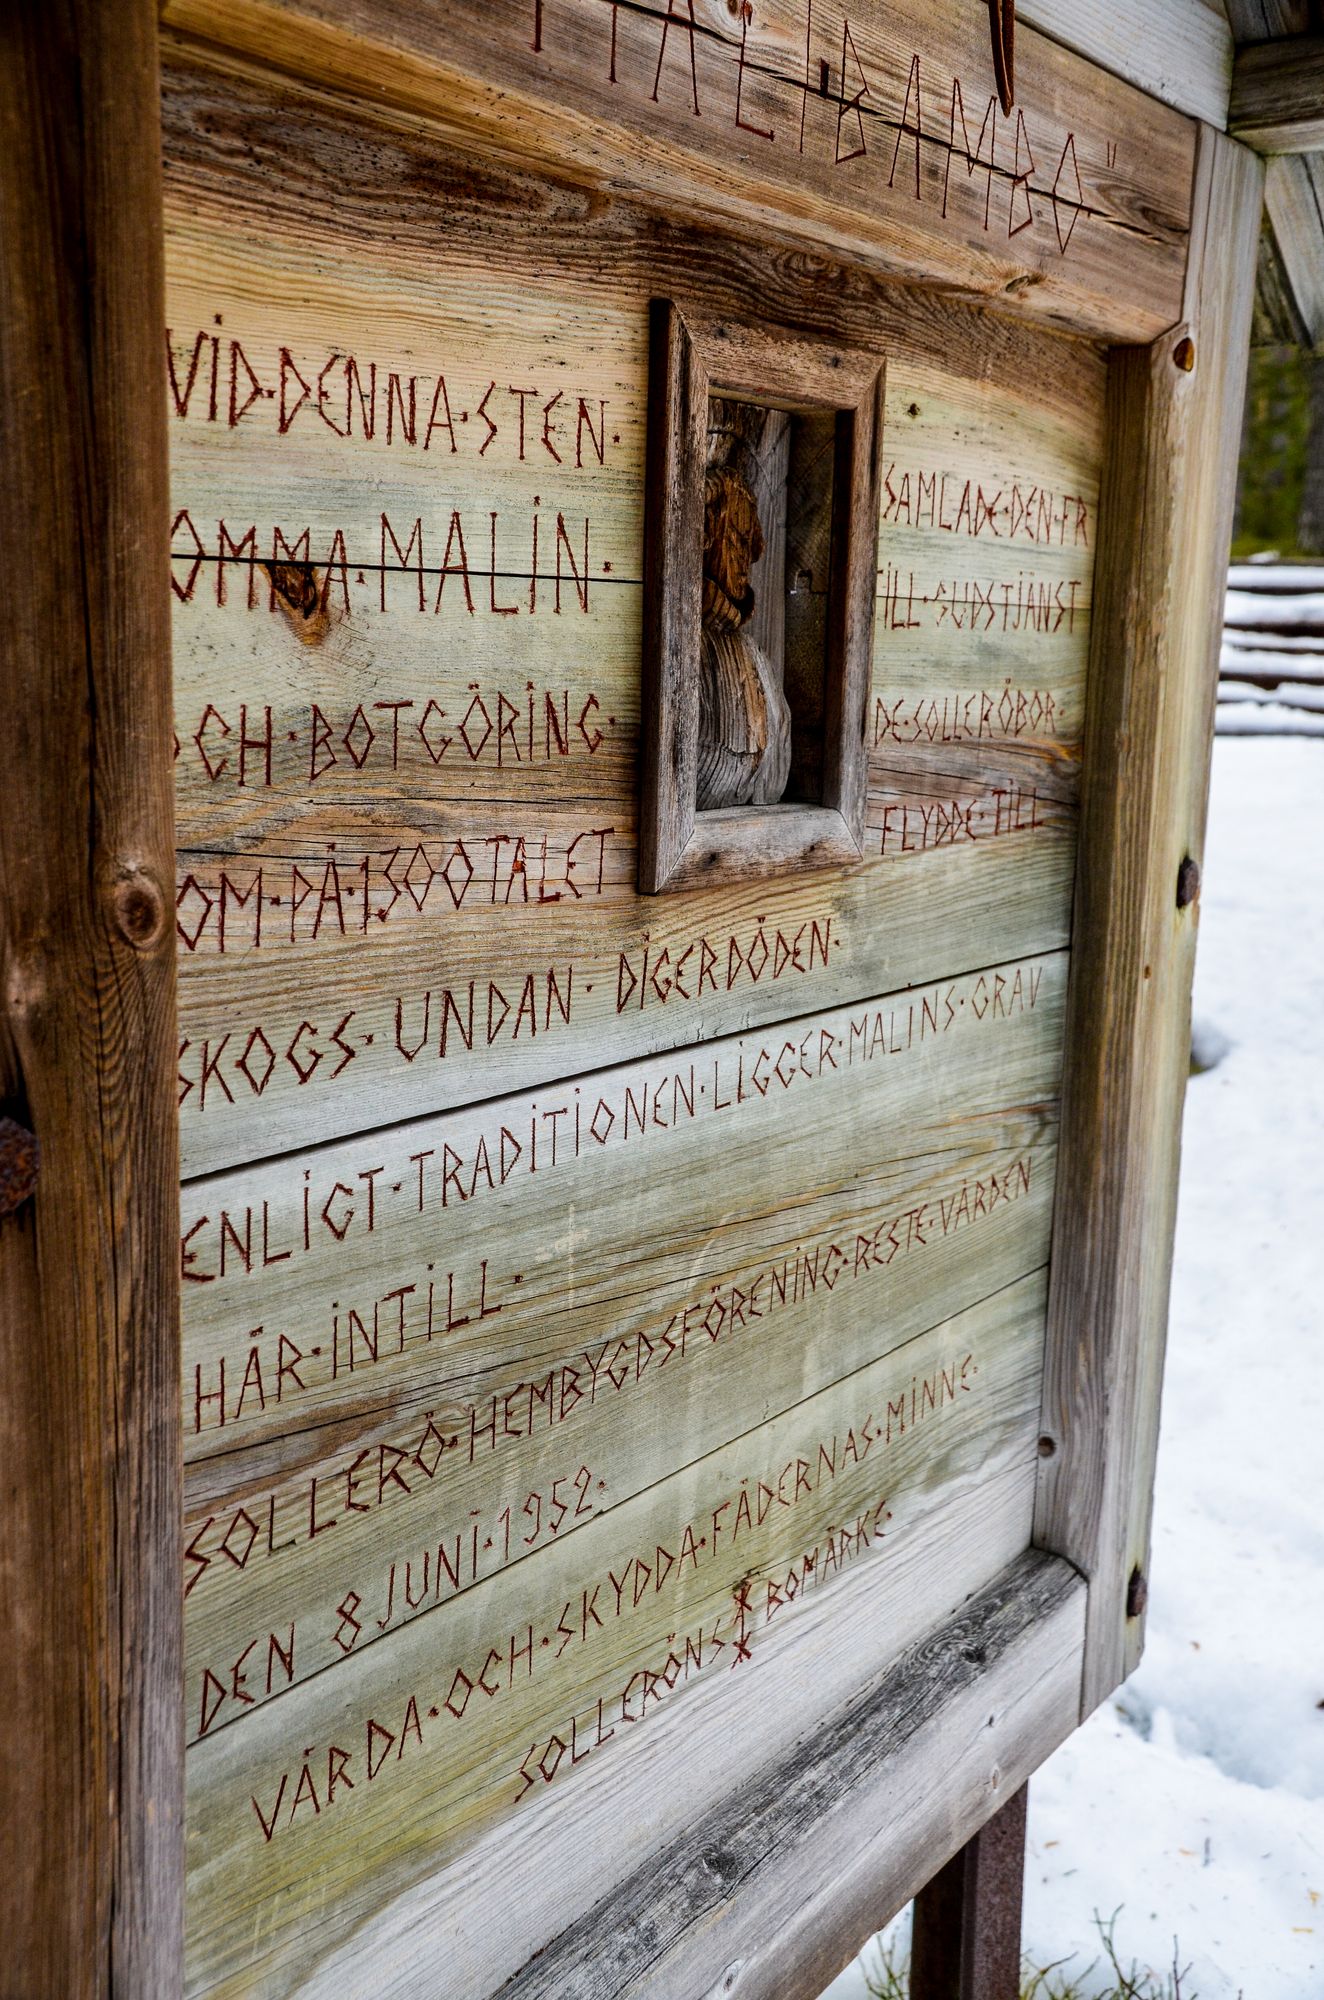 MALIBAMBO"
VID·DENNA·STEN· SAMLADE·DEN·FR
OMMA·MALIN· TILL·GUDSTJÄNST
OCH·BOTGÖRING· DE·SOLLERÖBOR·
OM·PÅ·1300TALET FLYDDE·TILL
SKOGS·UNDAN·DIGERDÖDEN·
ENLIGT·TRADITIONEN·LIGGER·MALINS·GRAV
HÄR·INTILL·
SOLLERÖ·HEMBYGDSFÖRENING·RESTE·VÅRDEN
DEN 8 JUNI·1952·
VÅRDA·OCH·SKYDDA·FÄDERNAS·MINNE·
SOLLERÖNS BOMÄRKE·